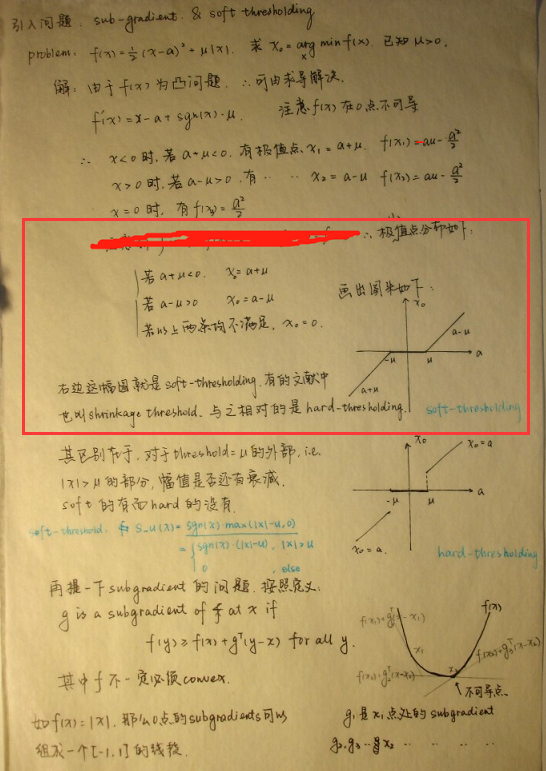 引入问题. sub-gradient. & soft thresholding.
problem: f(x)=½(x-a)²+μ|x|. 求 x₀=arg min f(x). 已知 μ>0.
x
解: 由于f(x)为凸问题. ∴可由求导解决.
f'(x)=x-a+sgn(x)·μ 注意f(x)在0点不可导
∴ x<0时, 若 a+μ<0. 有极值点 x₁=a+μ. f(x₁)=-au-a²/2
x>0时, 若 a-μ>0. 有 ‥ ‥ x₂=a-μ f(x₂)=au-a²/2
x=0时, 有f(x₃)=a²/2
∴ 极值点分布如下:
若 a+μ<0. x₀=a+μ
若 a-μ>0 x₀=a-μ
若以上两条均不满足, x₀=0.
画出图来如下:
x₀
a-μ
-μ μ a
a+μ
右边这幅图就是soft-thresholding. 有的文献中
也叫shrinkage threshold. 与之相对的是hard-thresholding.
soft-thresholding
其区别在于, 对于threshold=μ的外部, i.e.
|x|>μ的部分, 幅值是否还有衰减.
soft的有而hard的没有.
x₀ x₀=a
-μ μ a
x₀=a.
hard-thresholding
soft-threshold. S_u(x)=sgn(x)·max(|x|-u,0)
= sgn(x)·(|x|-u), |x|>u
0 , else
再提一下subgradient的问题. 按照定义:
g is a subgradient of f at x if
f(y)≥f(x)+gᵀ(y-x) for all y.
其中f不一定必须convex.
如f(x)=|x|. 那么0点的subgradients可以
组成一个[-1,1]的线段.
f(x)
x₁
x₂
不可导点.
g₁是x₁点处的subgradient
g₂,g₃ ‥ x₂ ‥ ‥ ‥